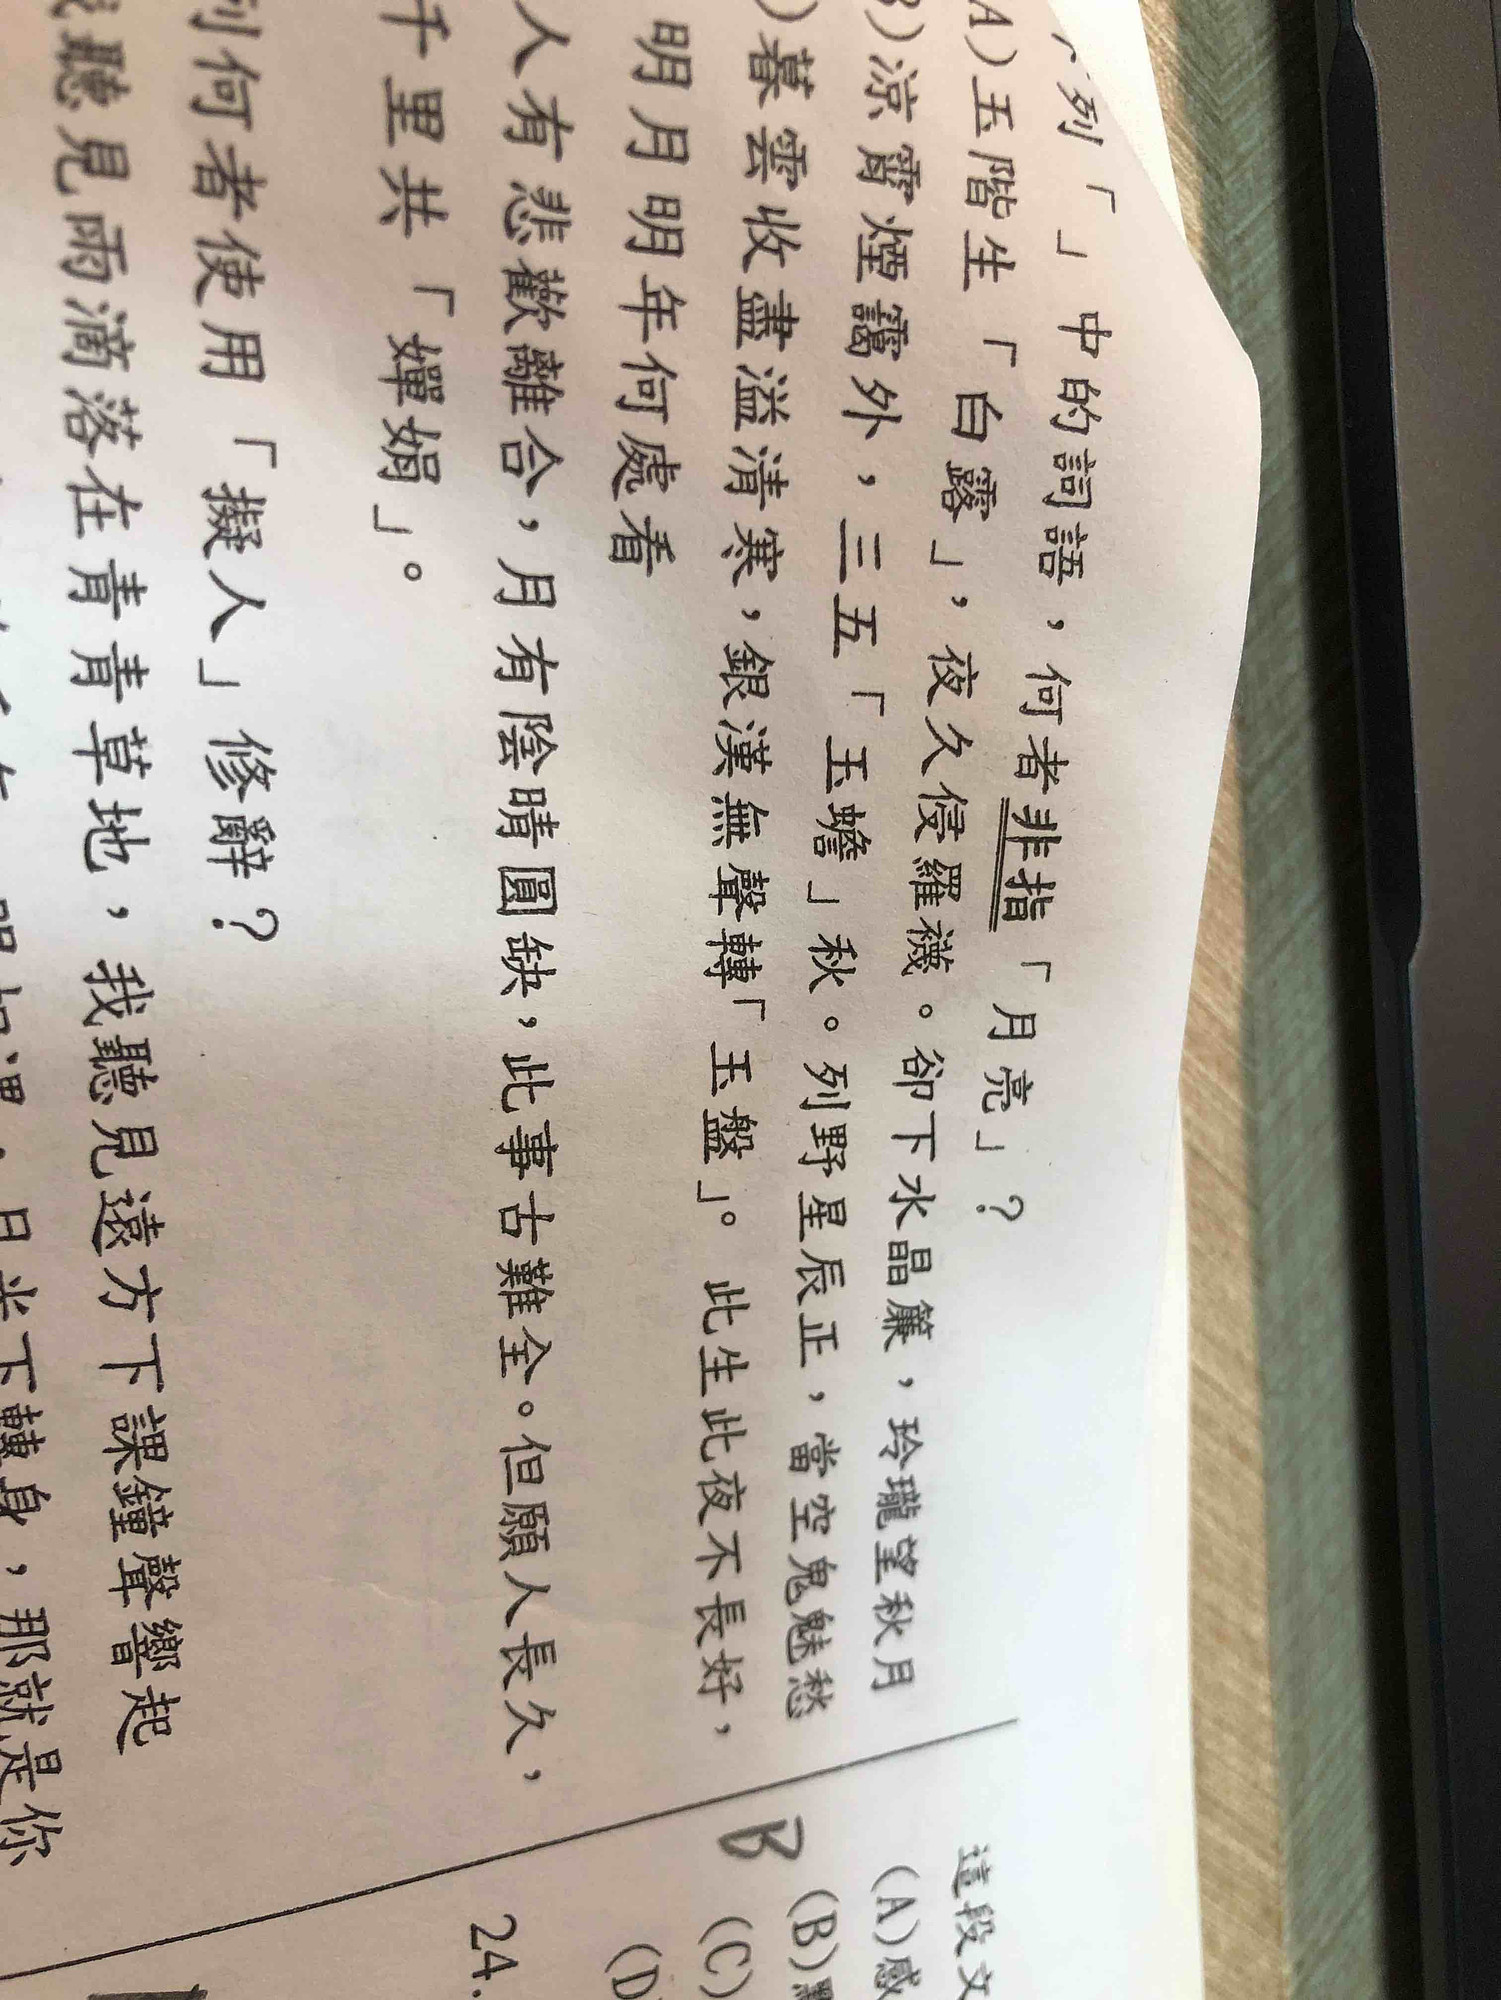 下列「」中的詞語，何者非指「月亮」？
A)玉階生「白露」，夜久侵羅襪。卻下水晶簾，玲瓏望秋月
B)涼霄煙靄外，三五「玉蟾」秋。列野星辰正，當空鬼魅愁
)暮雲收盡溢清寒，銀漢無聲轉「玉盤」。此生此夜不長好，
明月明年何處看
人有悲歡離合，月有陰晴圓缺，此事古難全。但願人長久，
千里共「嬋娟」。
列何者使用「擬人」修辭？
我聽見雨滴落在青青草地，我聽見遠方下課鐘聲響起
月光下轉身，那就是你
這段文
(A)感
B
(B)
(C)
(D
24.